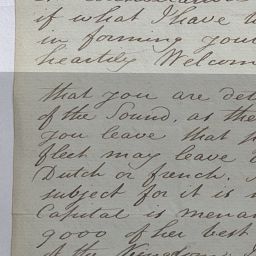 if what I have
in forming your
heartily Welcom
that you are det
of the Sound, as the
you leave that
fleet may leave
Dutch or french.
subject for it is
Capital is mena
9000 of her best
of the Kingdom